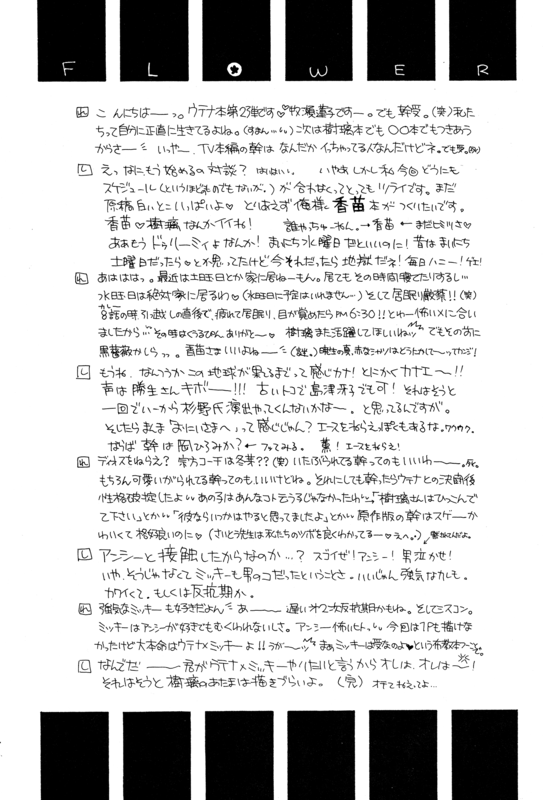 F L O W E R
こんにちはーっ。ウテナ本第2弾です♡牧瀬 ですー。でも幹受。(笑)私た
ちって自分に正直に生きてるよね。 次は樹璃本でも○○本でもつきあう
からさー いっやー、TV本編の幹はなんだかイっちゃってる人なんだけどネ。でも受。
えっなにもう始めるの対談?はいはい。 いやあしかし私今回どうにも
スケジュール(というほどのものでもないが。)が合わなくってとってもツライです。まだ
原稿白いとこいっぱいよ♡ とりあえず俺様香苗本がつくりたいです。
香苗♡樹璃なんかイイね! 誰やっちゅーねん。→香苗
ああもう よなんか!おにちち水曜日 だといいのに!昔はまいにち
土曜日だったら♡とか思ってたけど今それだったら地獄だネ!毎日ハニー!
あはははっ。最近は土日日とか家に居ねーもん。居てもその時間寝てたりするし
水曜日は絶対家に居るわ♡(水曜日に予定はいれませんー)そして居眠り厳禁!!(笑)
8話の時引越しの直後で、疲れて居眠り、目が覚めたらPM6:30!!とゆー怖いメに合い
ましたから 樹璃また活躍してほしいねッ でもその前に
黒薔薇かしらっ。香苗さまいいよねー
しもうね、なんつうかこの地球が果てるまでって感じカナ!とにかくカナエ〜!!
声は勝生さんキボー!!! 古いトコで島津冴子でも可!それはそうと
一回でいーから杉野氏演出やってくんないかなー。と思ってるんですが。
そしたらまんま「おにいさまへ」って感じじゃん?エースをねらえぽくもあるな。ワクワク。
ならば幹は岡ひろみか?←フってみる。 薫!エースをねらえ!
テニスをねらえ?宗方コーチは冬芽??(笑)いたぶられてる幹ってのもいいわー。死。
もちろん可愛いがられてる幹ってのもいいけどね。それにしても幹たらウテナとの決闘後
性格破綻したよ あの子はあんなコト云うるじゃなかったわ 「樹璃さんはひっこんで
て下さい」とか 「彼ならいつかはやると思ってましたよ」とか 原作版の幹はスゲーか
わいくて格好良いのに♡(さいとう先生は私たちのツボを良くわかってるー♡えへ。)
アンシーと接触したからなのか…?スゴイぜ!アンシー!男泣かせ!
いや、そうじゃなくてミッキーも男のコだったということさ。いいじゃん強気なカレも。
カワイくて。もしくは反抗期か。
強気なミッキーも好きだよん あーーー 遅いオ2次反抗期かもね。そしてミスコン。
ミッキーはアンシーが好きでもむくわれないしさ。アンシー怖いもん。 今回は1Pも描けな
かったけど大本命はウテナ×ミッキーよ!!うがー まあ、ミッキーは受なのよ♥という布教本
なんでだ ーー君がウテナ×ミッキーやりたいと言うからオレは、オレは〜!
それはそうと樹璃のあたまは描きづらいよ。(完)